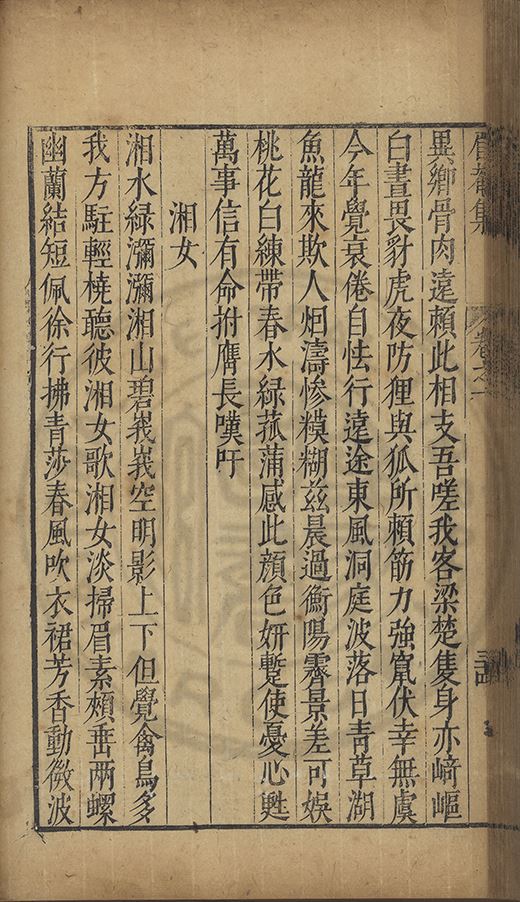 卷之一
異鄉骨肉遠賴此相支吾嗟我客梁楚隻身亦崎嶇
白晝畏豺虎夜防狸與狐所賴筋力強竄伏幸無虞
今年覺衰倦自怯行遠途東風洞庭波落日靑草湖
魚龍來欺人烟濤慘糢糊茲晨過衡陽霽景差可娛
桃花白練帶春水綠菰蒲感此顔色妍蹔使憂心甦
萬事信有命拊膺長嘆吁
湘女
湘水綠瀰瀰湘山碧峩峩空明影上下但覺禽鳥多
我方駐輕橈聽彼湘女歌湘女淡掃眉素頰垂兩螺
幽蘭結短佩徐行拂青莎春風吹衣裙芳香動微波